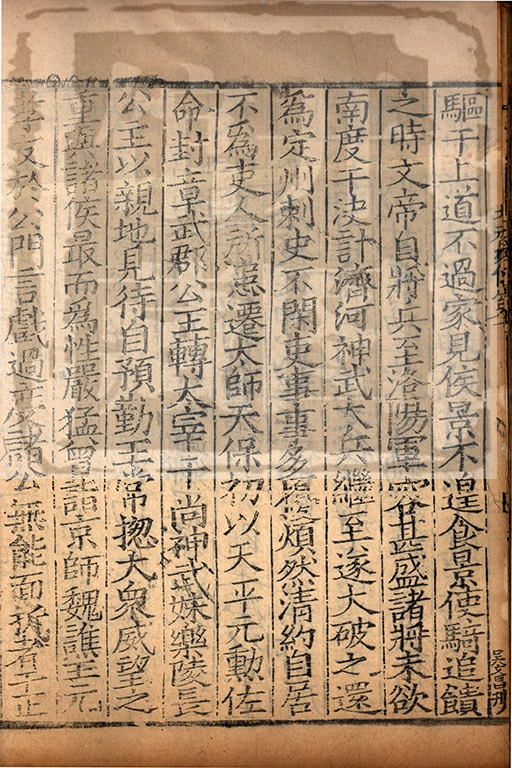 驅干上道不過家見侯景不遑食景使騎追饋
之時文帝自將兵至洛陽軍容甚盛諸將未欲
南度干决計濟河神武大兵繼至遂大破之還
為定州刺史不閑吏事事多擾煩然清約自居
不為吏人所患遷太師天保初以天平元勳佐
命封章武郡公王轉太宰干尚神武妹樂陵長
公主以親地見待自預勤王常揔大衆威望之
重與諸侯最而為性嚴猛曾詣京師魏譙王元
孝友於公門言戲過度諸公無能面折者干正